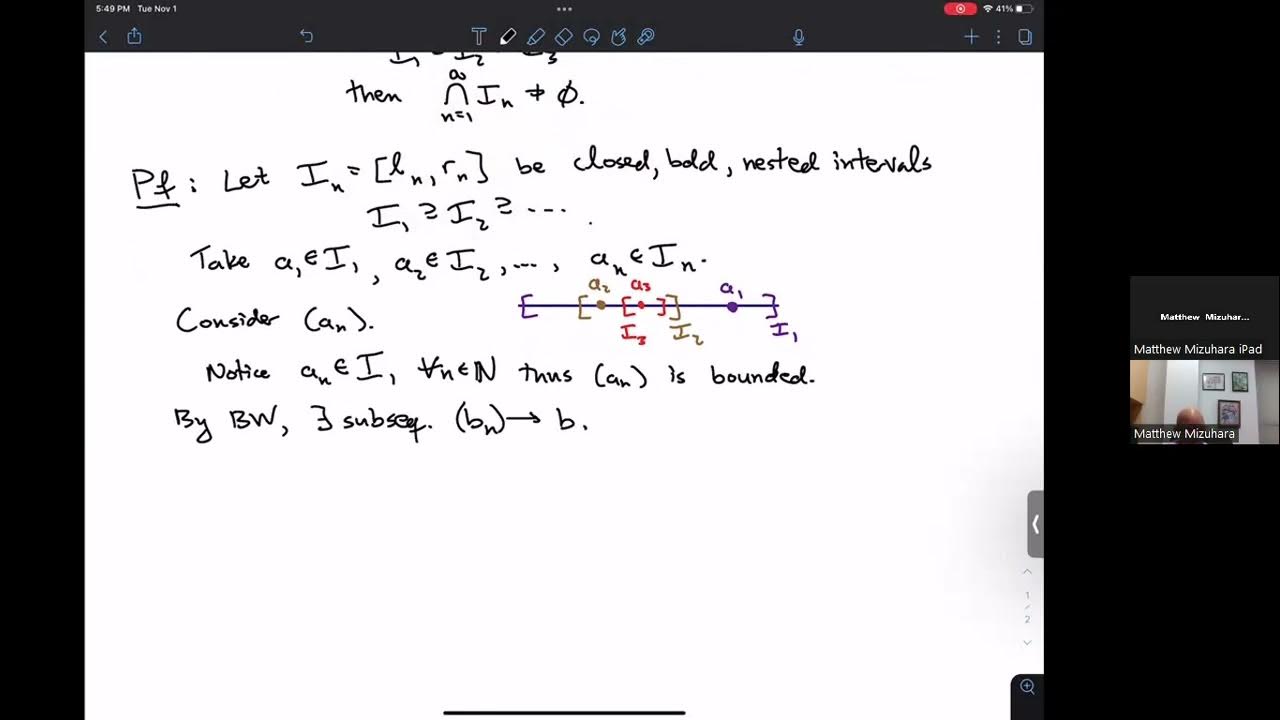 5:49 PM Tue Nov 1
41%
I₁ I₂ I₃
then ∞ ⋂ n=1 Iₙ ≠ ∅.
Pf: Let Iₙ = [lₙ, rₙ] be closed, bdd, nested intervals
I₁ ⊇ I₂ ⊇ ---.
Take a₁ ∈ I₁, a₂ ∈ I₂, ..., aₙ ∈ Iₙ.
a₂ a₃ a₁
Consider (aₙ).
I₃ I₂ I₁
Notice aₙ ∈ I, ∀n∈ℕ thus (aₙ) is bounded.
By BW, ∃ subseq. (bₙ) → b.
Matthew Mizuhar...
Matthew Mizuhara iPad
Matthew Mizuhara
1
/
2